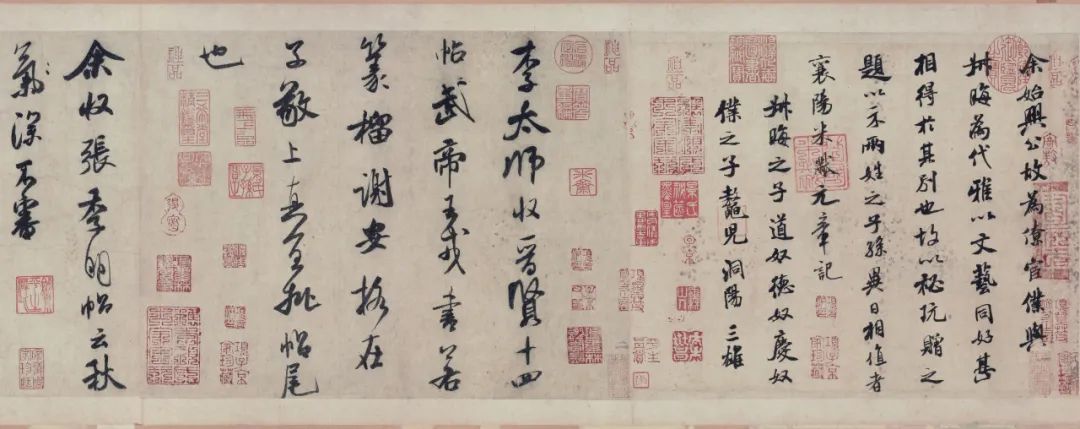 余始興公故為僚宦僕與
叔晦為代雅以文藝同好甚
相得於其別也故以秘玩贈之
題以示兩姓之子孫異日相值者
襄陽米黻元章記
叔晦之子道奴德奴慶奴
僕之子鼇兒洞陽三雄
李太師收晉賢十四
帖武帝王戎書若
篆籀謝安格在
子敬上真宜批帖尾
也
余收張季明帖云秋
氣深不審